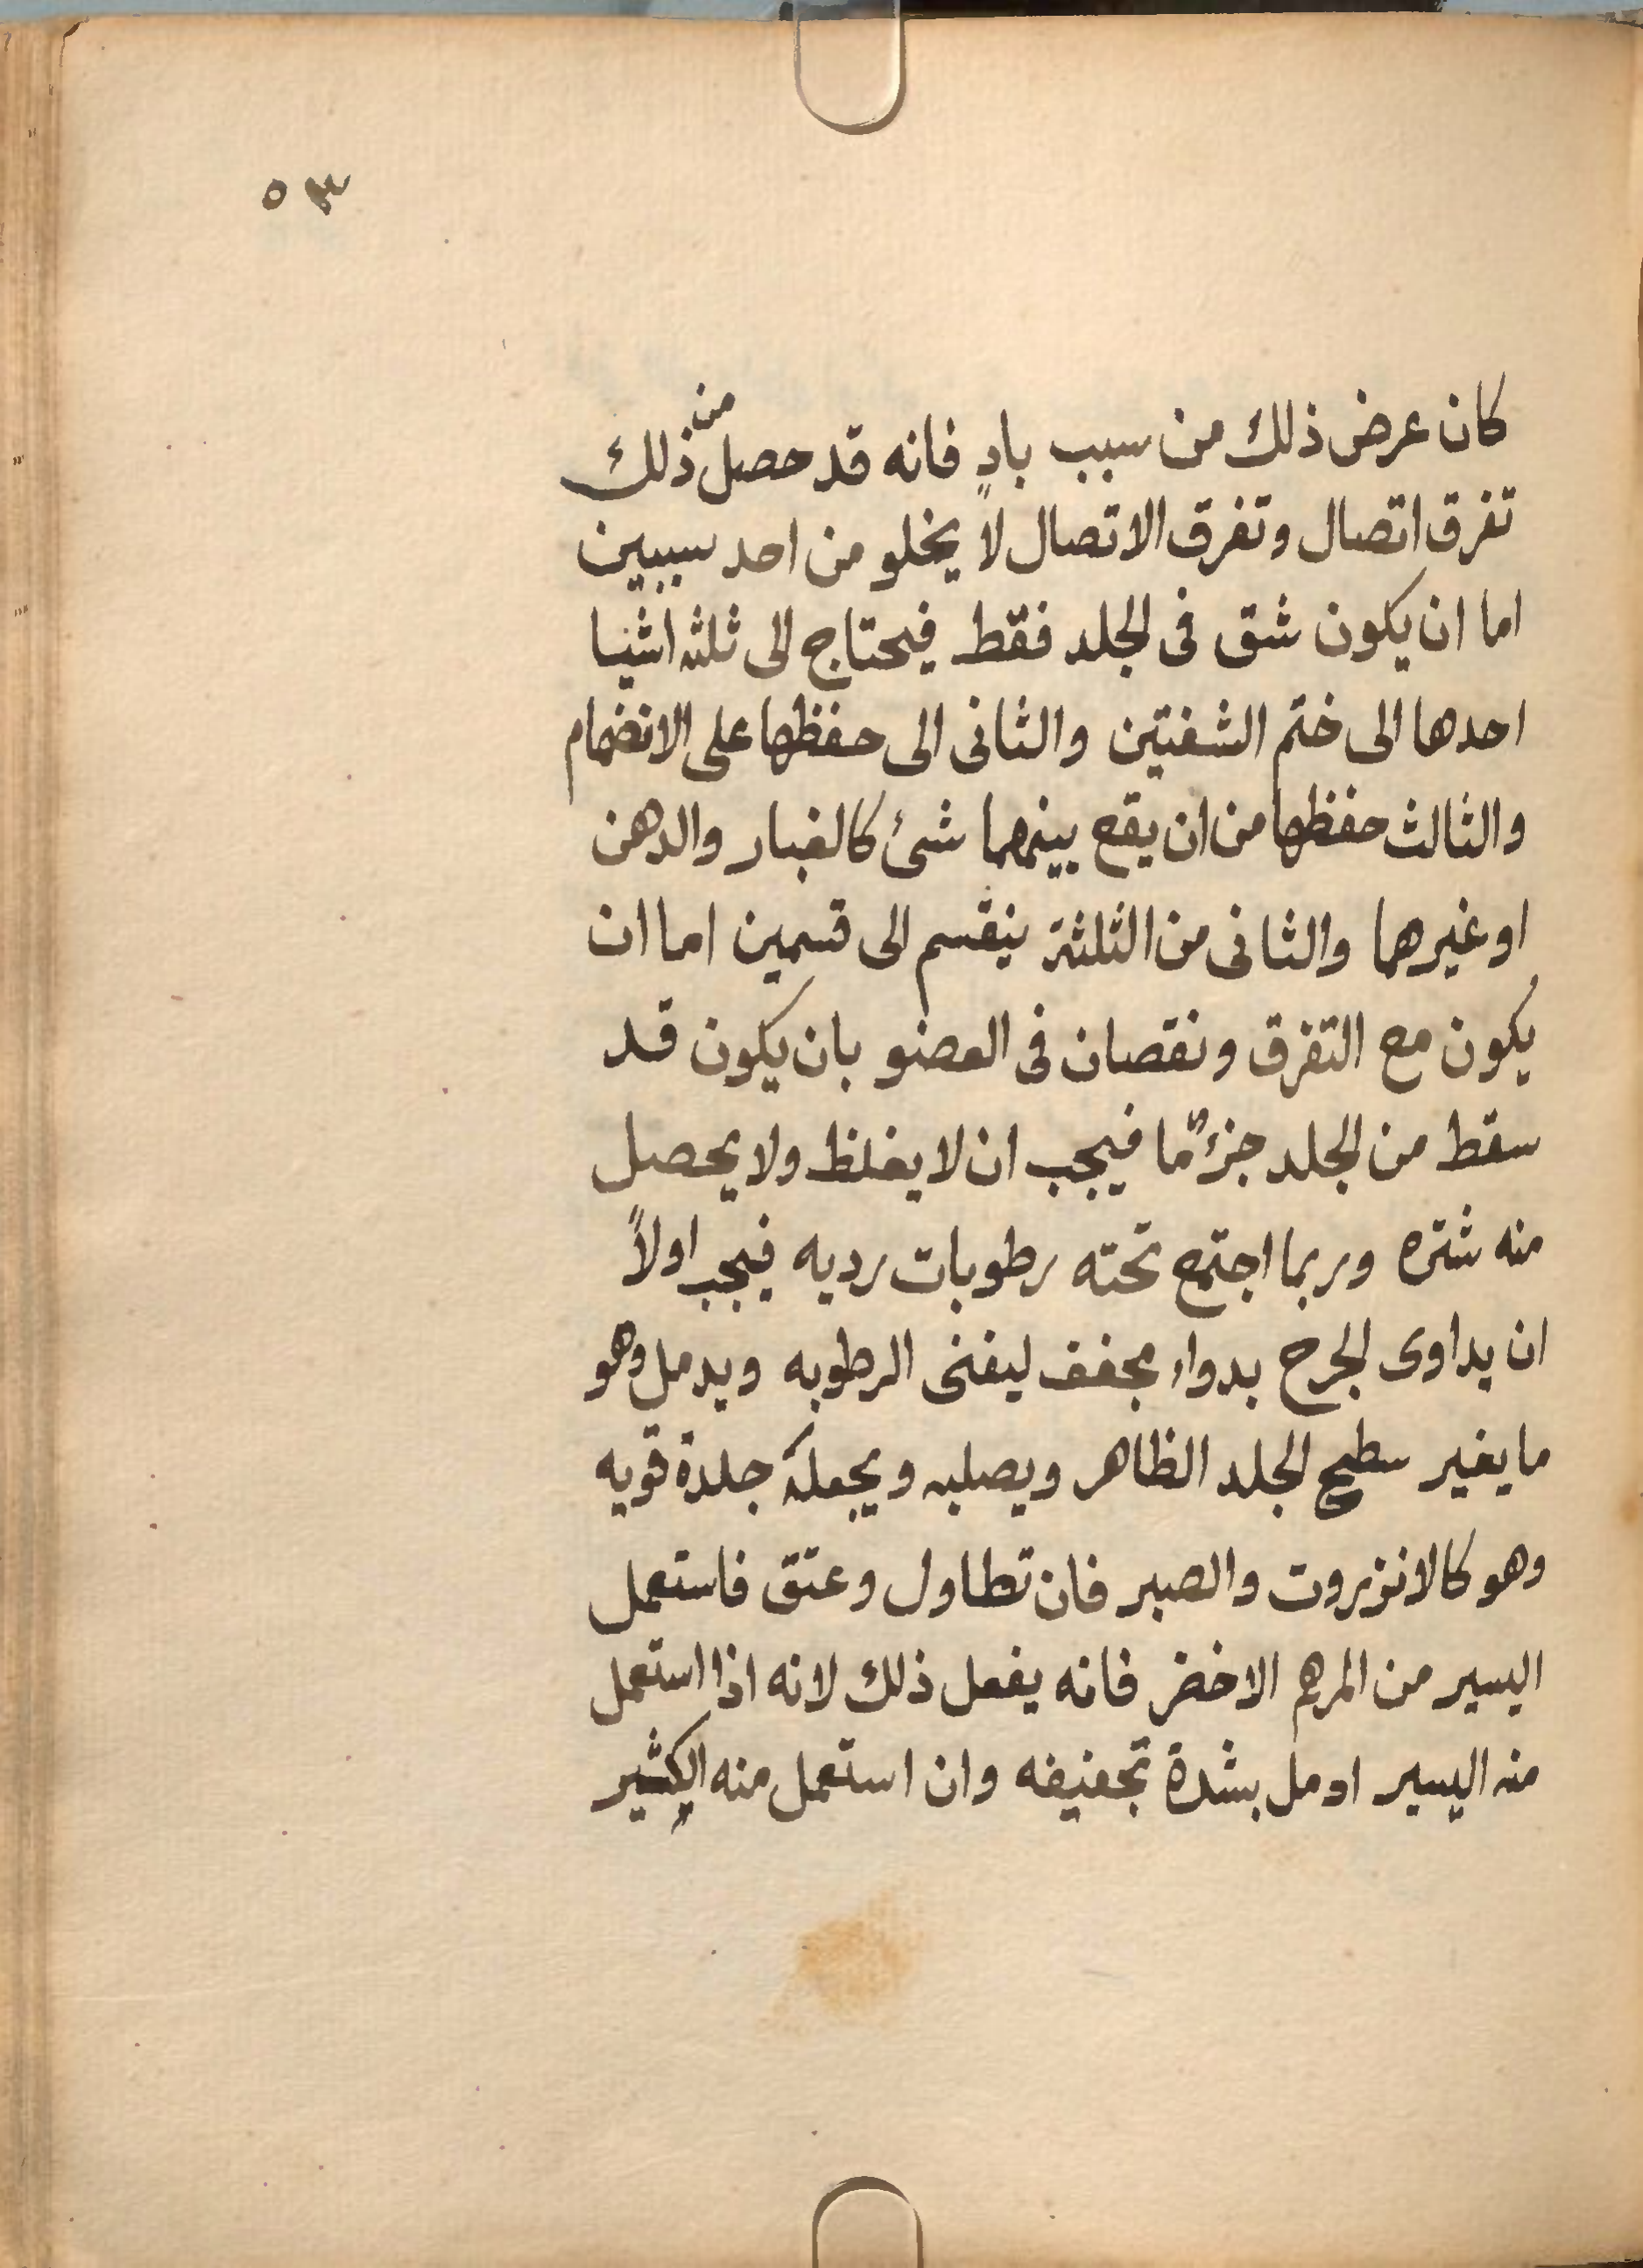 ٥٣
كان عرض ذلك من سبب بادٍ فانه قد حصل من ذلك
تفرق اتصال وتفرق الاتصال لا يخلو من احد سببين
اما ان يكون شق فى الجلد فقط فيحتاج الى ثلثه اشيا
احدها الى ختم الشفتين والثانى الى حفظها على الانضمام
والثالث حفظها من ان يقع بينهما شئ كالغبار والدهن
او غيرهما والثانى من الثلثة ينقسم الى قسمين اما ان
يكون مع التفرق ونقصان فى العضو بان يكون قد
سقط من الجلد جزءٌ ما فيجب ان لا يغلظ ولا يحصل
منه شتره وربما اجتمع تحته رطوبات رديه فيجب اولاً
ان يداوى الجرح بدواء مجفف ليفنى الرطوبه ويدمل وهو
ما يغير سطح الجلد الظاهر ويصلبه ويجعله جلدة قويه
وهو كالانزروت والصبر فان تطاول وعتق فاستعمل
اليسير من المرهم الاخضر فانه يفعل ذلك لانه اذا استعمل
منه اليسير ادمل بشدة تجفيفه وان استعمل منه الكثير